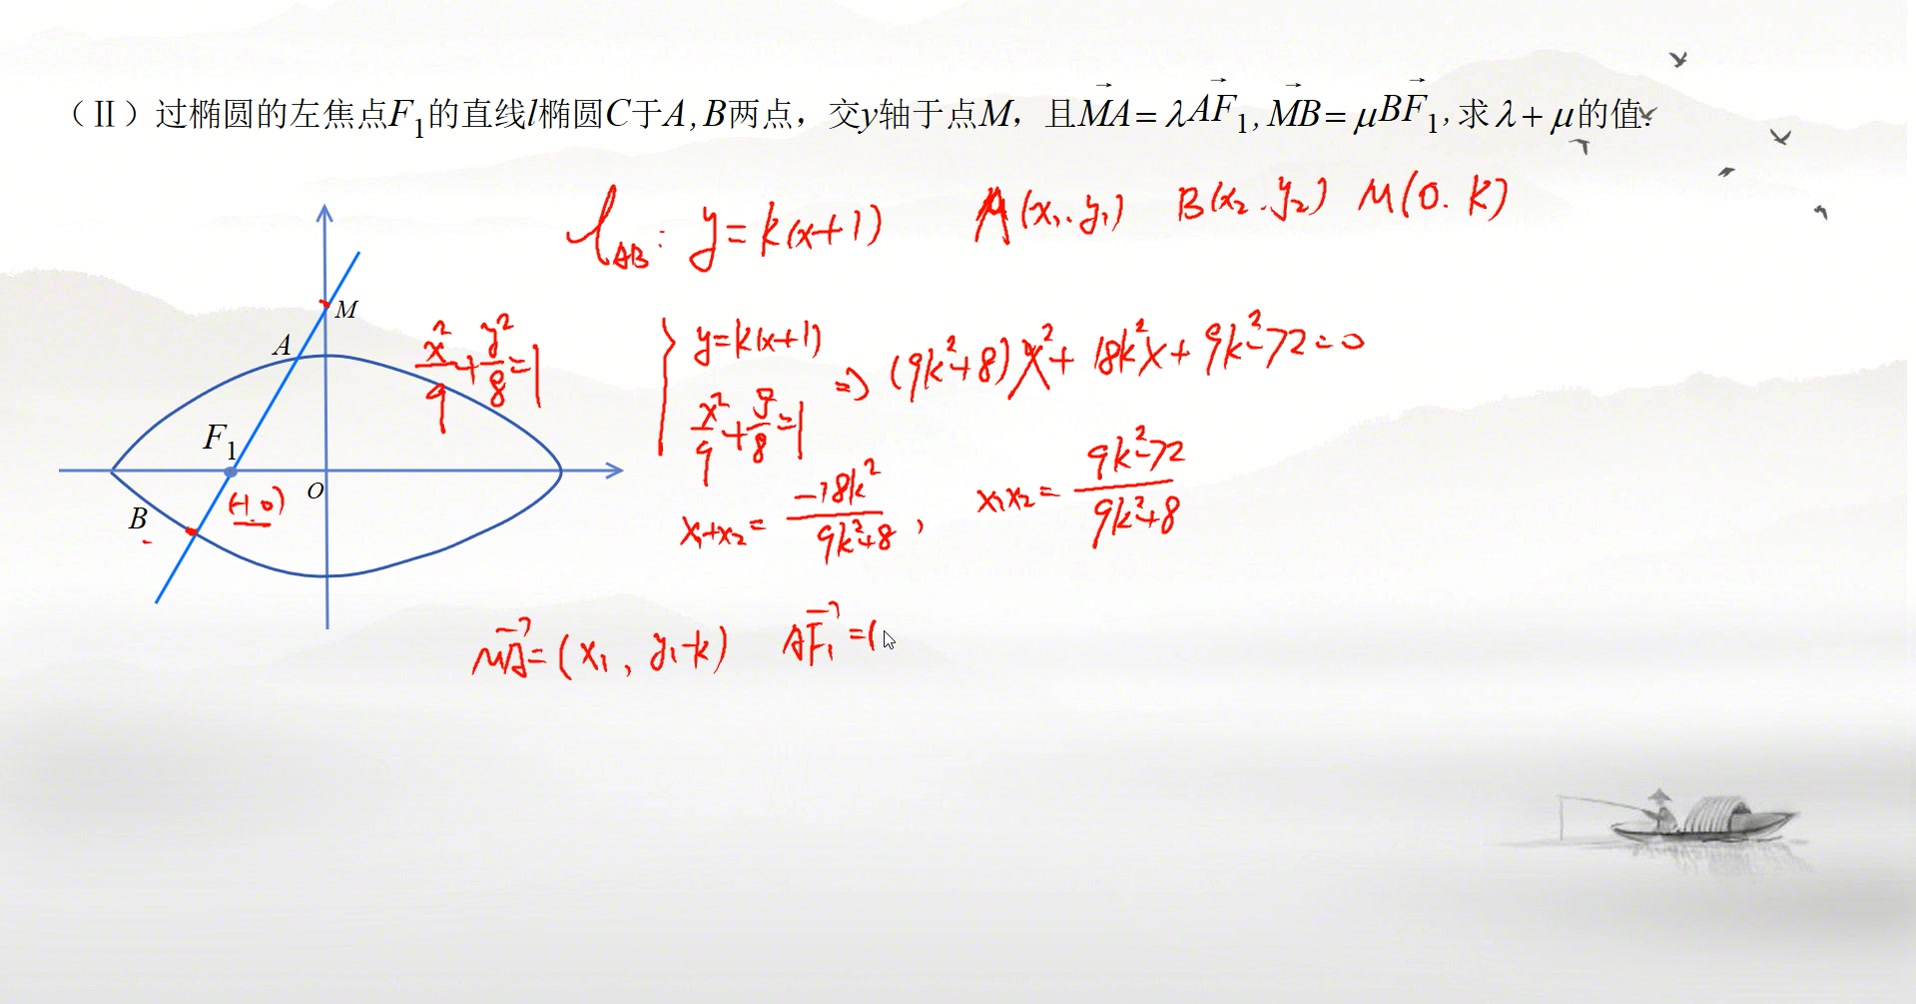 （Ⅱ）过椭圆的左焦点F₁的直线l椭圆C于A,B两点，交y轴于点M，且MA⃗=λAF₁⃗,MB⃗=μBF₁⃗,求λ+μ的值.
l_AB: y=k(x+1) A(x₁.y₁) B(x₂.y₂) M(0.k)
M
A
x²/9+y²/8=1
{ y=k(x+1)
x²/9+y²/8=1
⇒ (9k²+8)x²+18k²x+9k²-72=0
F₁
O
(-1.0)
B
x₁+x₂=-18k²/(9k²+8), x₁x₂=(9k²-72)/(9k²+8)
MA⃗=(x₁, y₁-k) AF₁⃗=(